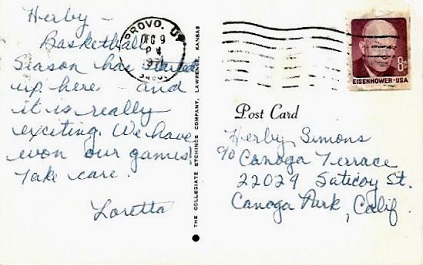 Herby -
Basketball
Season has started
up here - and
it is really
exciting. We have
won our games!
Take care.
Loretta
THE COLLEGIATE ETCHINGS COMPANY, LAWRENCE, KANSAS
PROVO, UT
DEC 9
PM
EISENHOWER·USA
8¢
Post Card
Herby Simons
c/o Canoga Terrace
22029 Saticoy St.
Canoga Park, Calif.